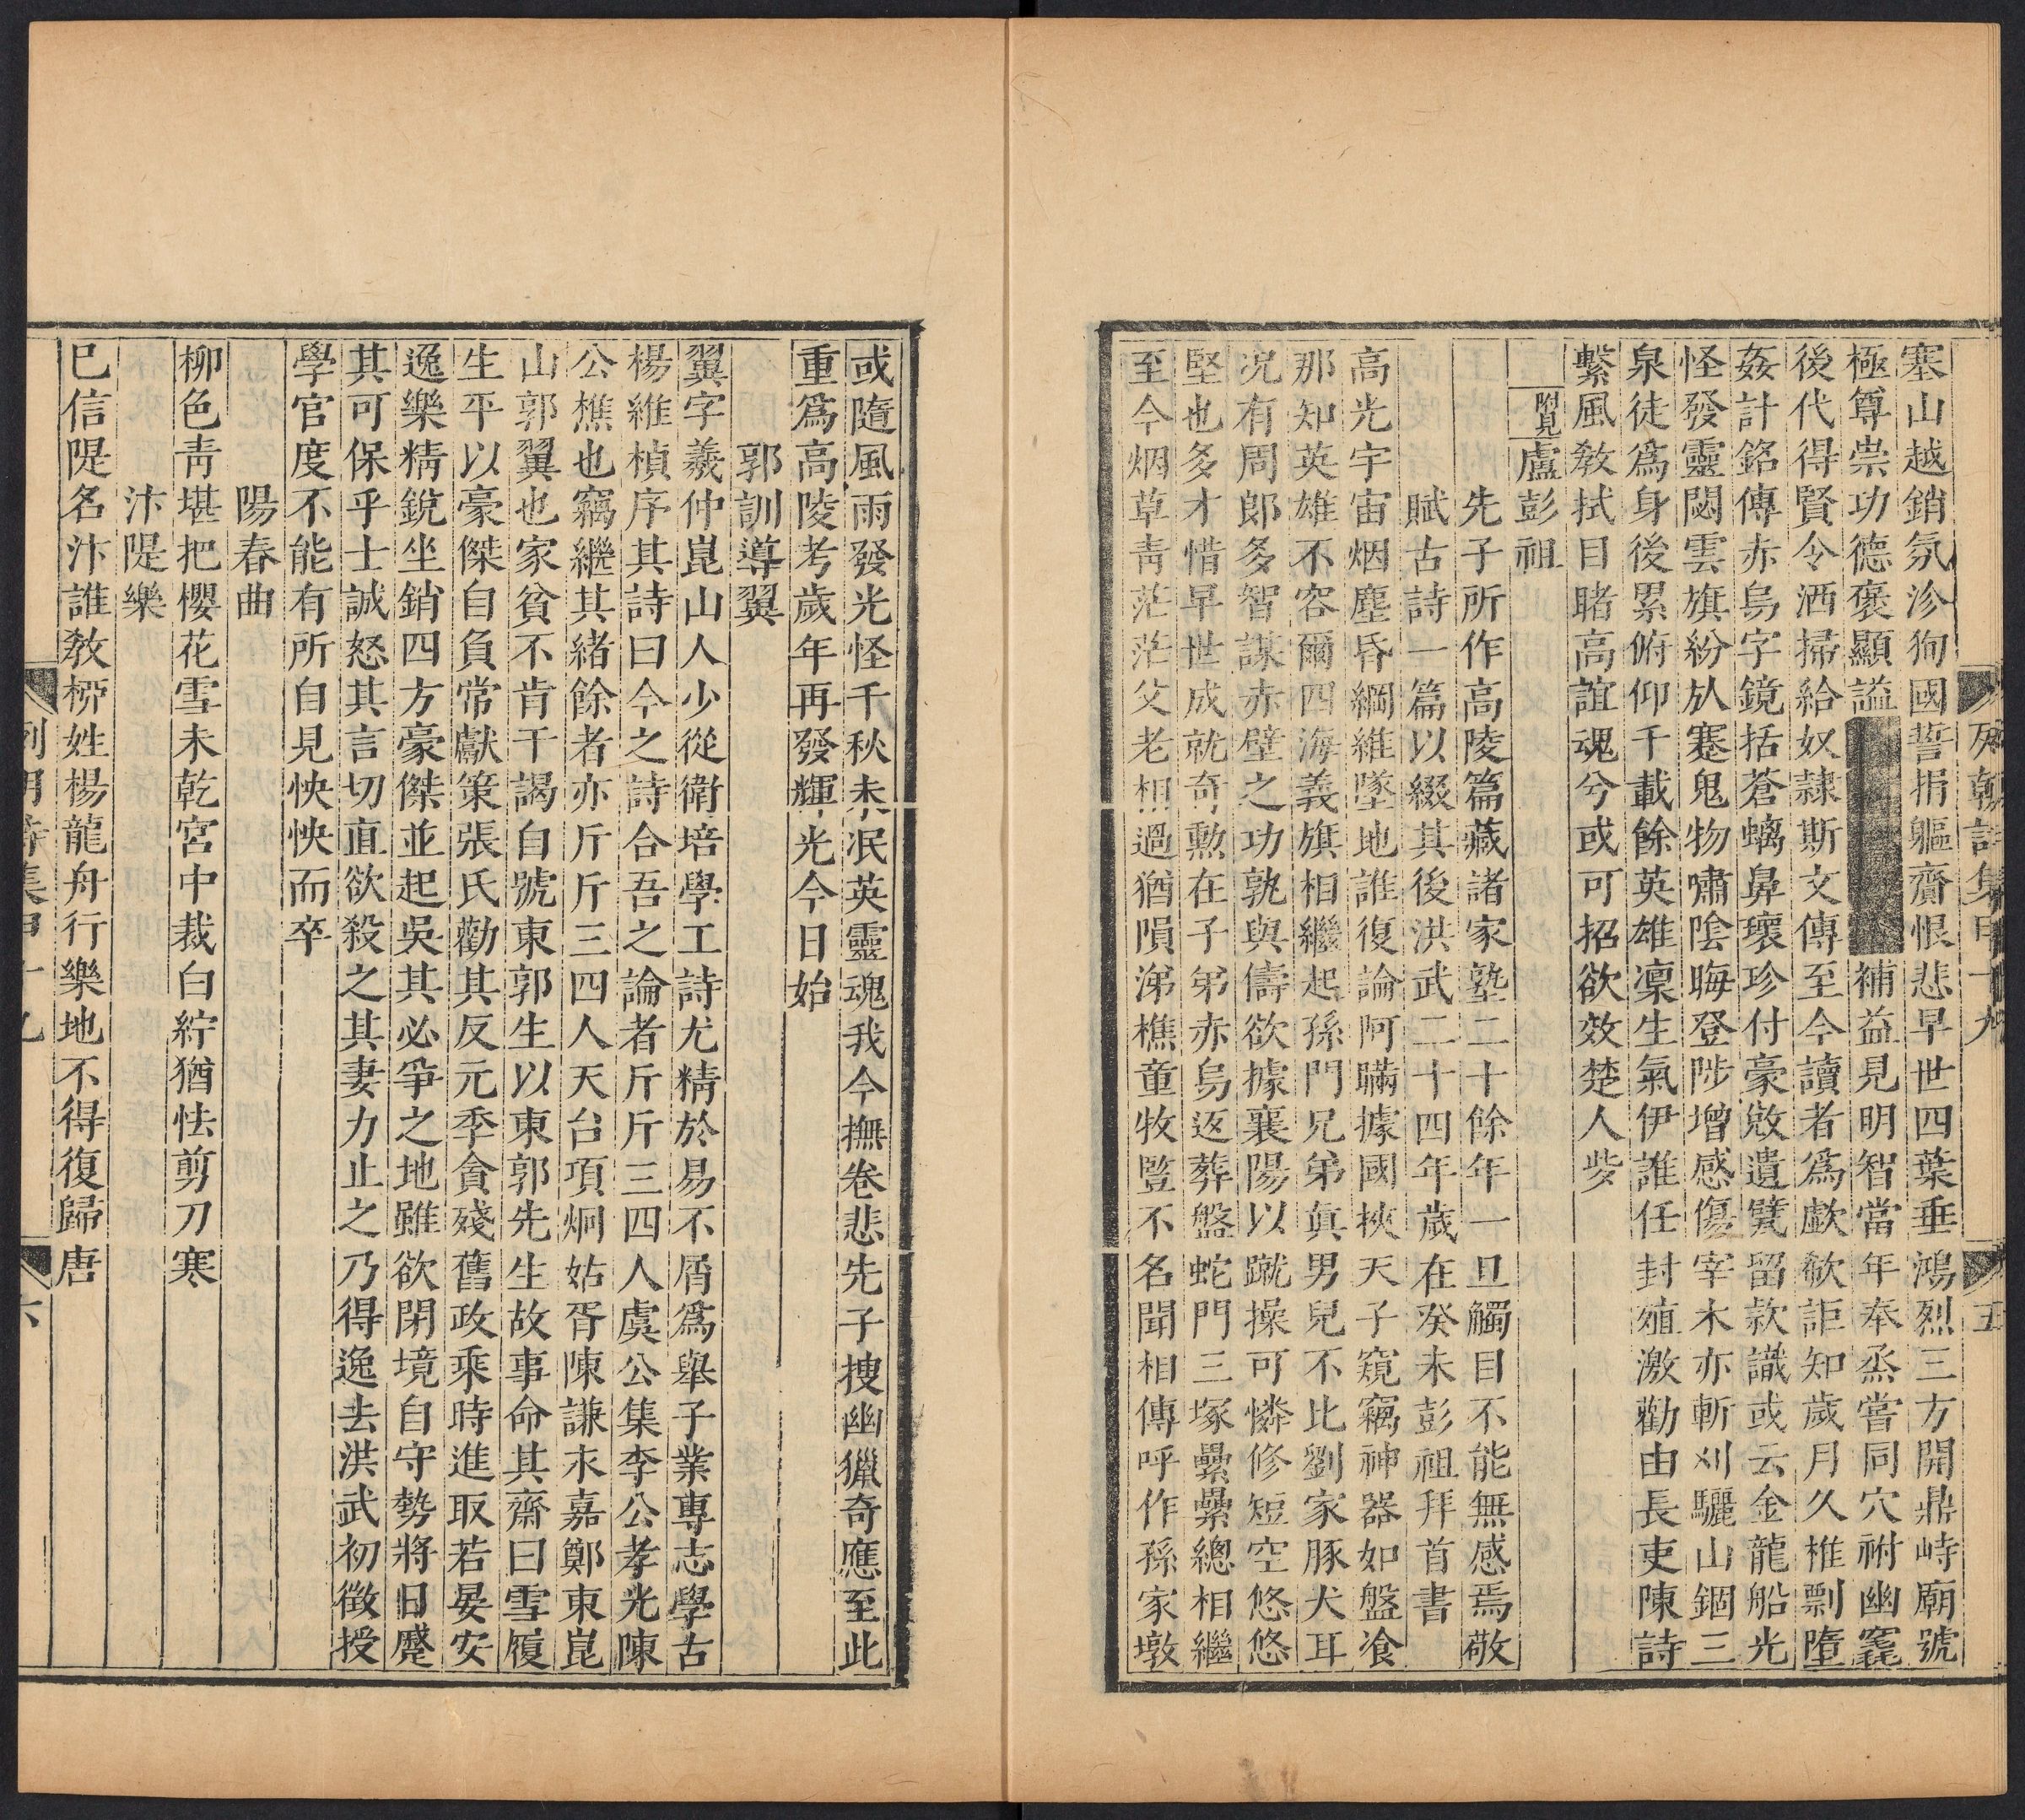 列朝詩集甲十九
五
塞山越銷氛沴狥國誓捐軀齎恨悲早世四葉垂鴻烈三方開鼎峙廟號
極尊崇功德褒顯謚補益見明智當年奉烝嘗同穴祔幽窀
後代得賢令洒掃給奴隸斯文傳至今讀者爲歔欷詎知歲月久椎剽墮
姦計銘傳赤烏字鏡括蒼螭鼻瓌珍付豪敓遺甓留款識或云金龍船光
怪發靈閟雲旗紛㫃蹇鬼物嘯陰晦登陟增感傷宰木亦斬刈驪山錮三
泉徒爲身後累俯仰千載餘英雄凜生氣伊誰任封殖激勸由長吏陳詩
繫風敎拭目睹高誼魂兮或可招欲效楚人些
附見盧彭祖
先子所作高陵篇藏諸家塾二十餘年一旦觸目不能無感焉敬
賦古詩一篇以綴其後洪武二十四年歲在癸未彭祖拜首書
高光宇宙烟塵昏綱維墜地誰復論阿瞞據國挾天子窺竊神器如盤飡
那知英雄不容爾四海義旗相繼起孫門兄弟眞男兒不比劉家豚犬耳
况有周郎多智謀赤壁之功孰與儔欲據襄陽以蹴操可憐修短空悠悠
堅也多才惜早世成就奇勲在子弟赤烏返葬盤蛇門三塚纍纍總相繼
至今烟草靑茫茫父老相過猶隕涕樵童牧豎不名聞相傳呼作孫家墩
或隨風雨發光怪千秋未泯英靈魂我今撫卷悲先子捜幽獵奇應至此
重爲高陵考歲年再發輝光今日始
郭訓導翼
翼字羲仲崑山人少從衛培學工詩尤精於易不屑爲舉子業專志學古
楊維楨序其詩曰今之詩合吾之論者斤斤三四人虞公集李公孝光陳
公樵也竊繼其緒餘者亦斤斤三四人天台項炯姑胥陳謙永嘉鄭東崑
山郭翼也家貧不肯干謁自號東郭生以東郭先生故事命其齋曰雪履
生平以豪傑自負常獻策張氏勸其反元季貪殘舊政乘時進取若晏安
逸樂精銳坐銷四方豪傑並起吳其必爭之地雖欲閉境自守勢將日蹙
其可保乎士誠怒其言切直欲殺之其妻力止之乃得逸去洪武初徵授
學官度不能有所自見怏怏而卒
陽春曲
柳色靑堪把櫻花雪未乾宮中裁白紵猶怯剪刀寒
汴隄樂
已信隄名汴誰敎桺姓楊龍舟行樂地不得復歸唐
列朝詩集甲十九
六